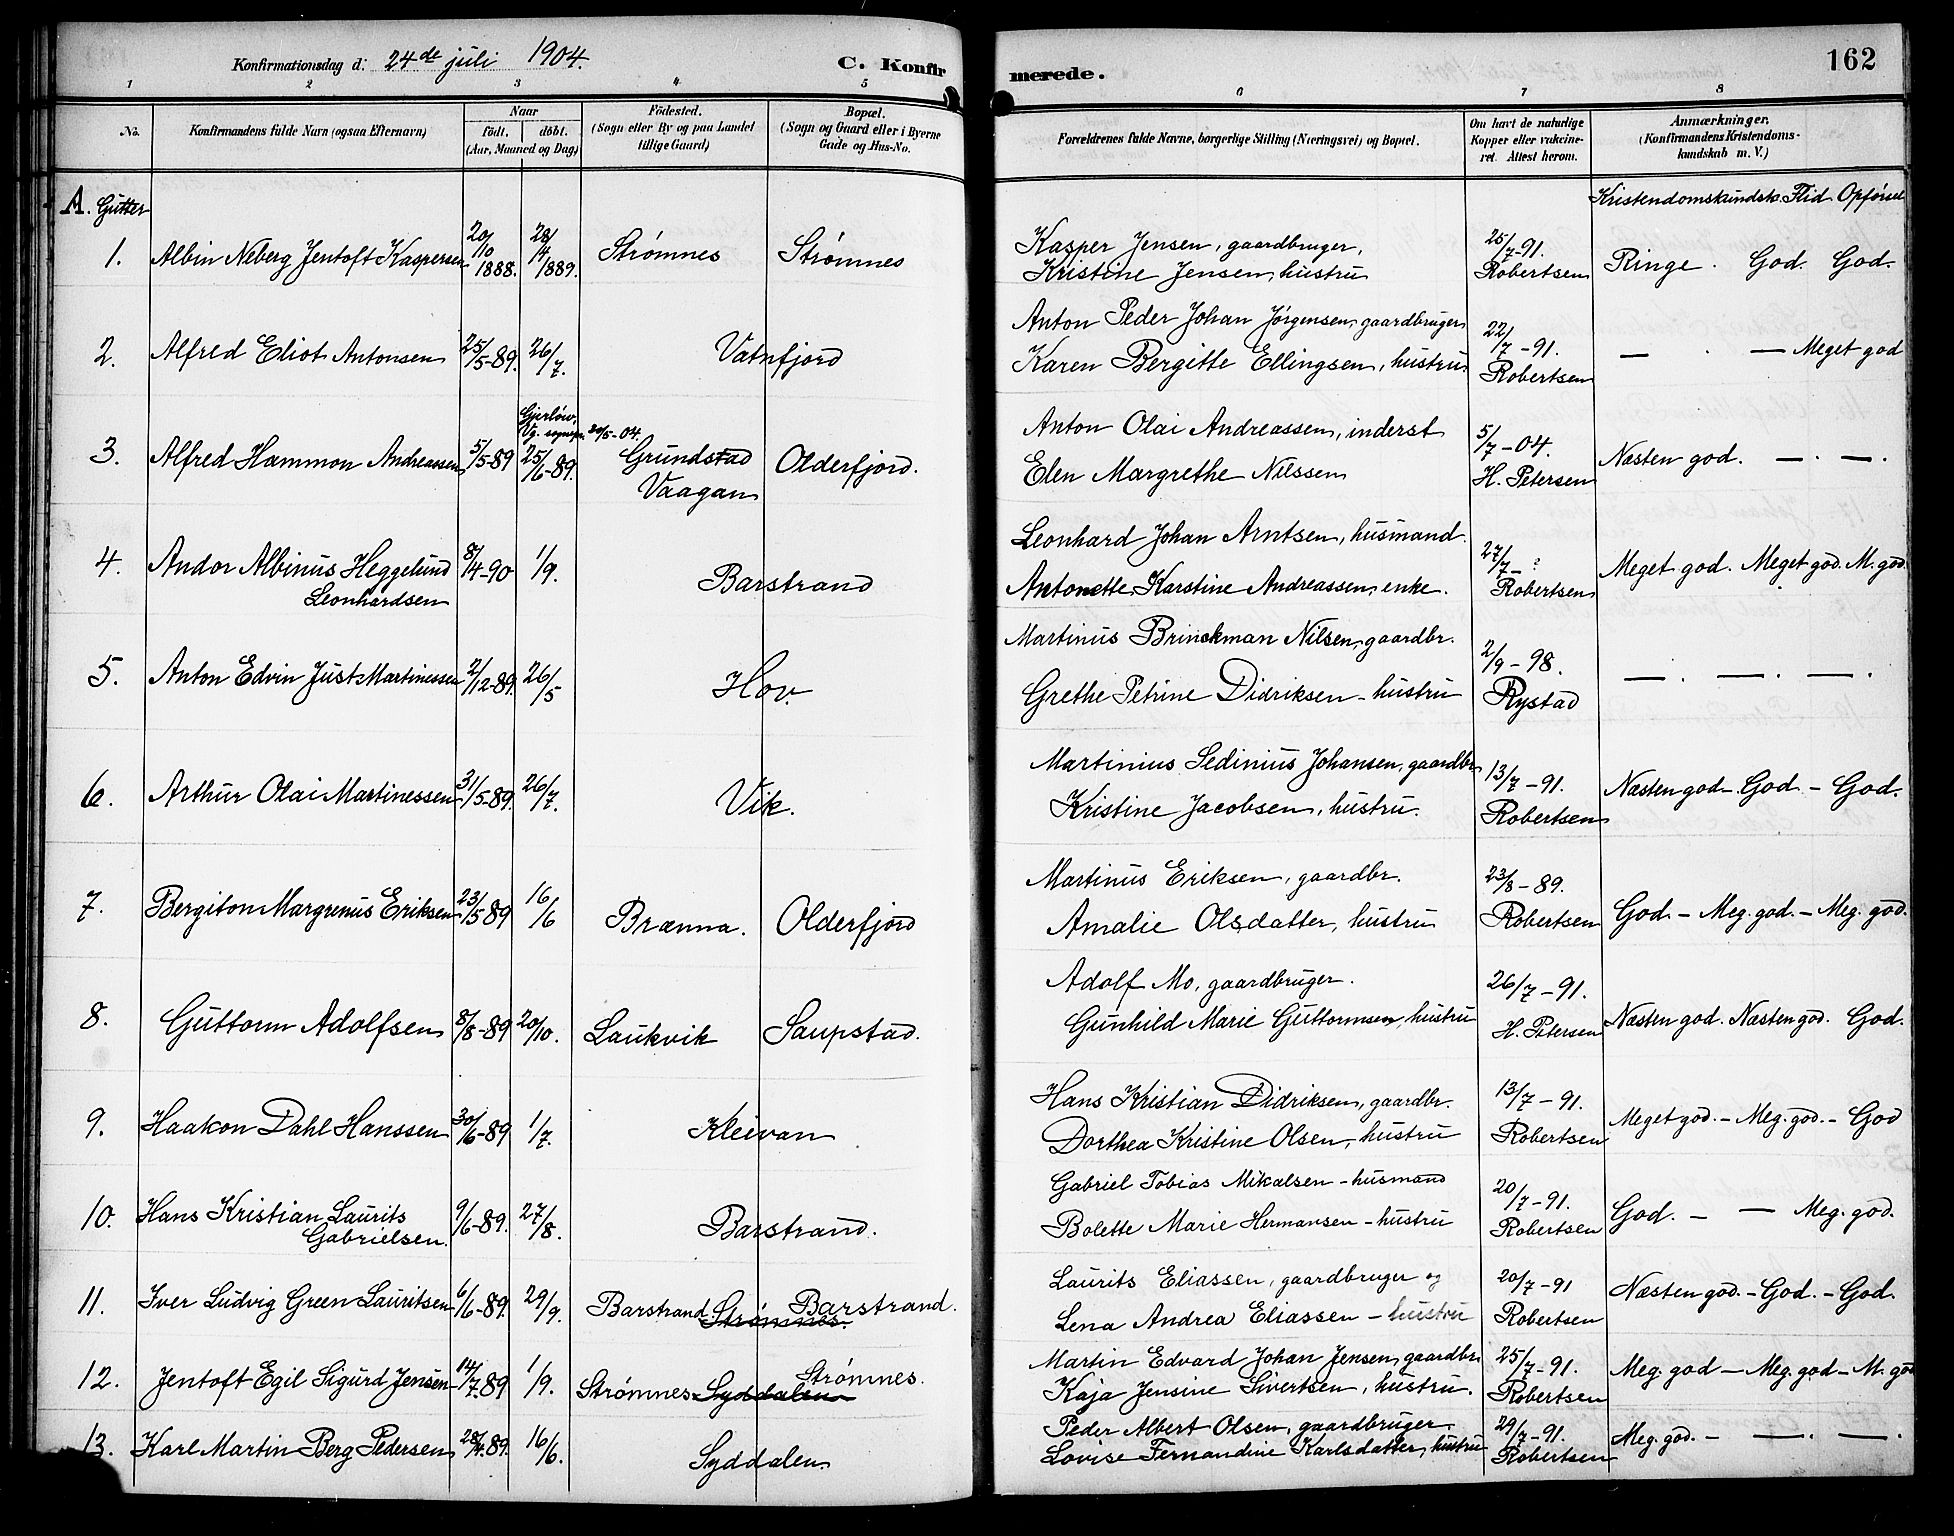 Konfirmationsdag d: 24de juli 1904.
C. Konfirmerede.
162
1 2 3 4 5 6 7 8
No.
Konfirmandens fulde Navn (ogsaa Efternavn)
Naar
födt. döbt.
(Aar, Maaned og Dag)
Födested.
(Sogn eller By og paa Landet
tillige Gaard)
Bopæl.
(Sogn og Gaard eller i Byerne
Gade og Hus-No.
Forældrenes fulde Navne, borgerlige Stilling (Næringsvei) og Bopæl.
Om havt de naturlige
Kopper eller vakcine-
ret. Attest herom.
Anmærkninger.
(Konfirmandens Kristendoms-
kundskab m. V.)
A. Gutter
Kristendomskundsk. Flid Opførsel
1. Albin Neberg Jentoft Kaspersen 20/10 1888. 28/4 1889. Strømnes Strømnes
Kasper Jensen, gaardbruger,
Kristine Jensen, hustru
25/7-91.
Robertsen
Ringe. God. God.
2. Alfred Eliot Antonsen 25/5-89. 26/7. Vatnfjord
Anton Peder Johan Jørgensen, gaardbruger
Karen Bergitte Ellingsen, hustru
22/7-91.
Robertsen
— . — Meget god
3. Alfred Hammon Andreassen 5/5-89 25/6-89. Grundstad
Vaagan
Olderfjord.
20/5-04.
Anton Olai Andreassen, inderst
Elen Margrethe Nilssen
5/7-04.
H. Petersen
Næsten god. — . — .
4. Andor Albinus Heggelund
Leonhardsen
8/4-90 1/9. Barstrand
Leonhard Johan Arntsen, husmand.
Antonette Karstine Andreassen, enke.
27/7-?
Robertsen
Meget god. Meget god. M. god.
5. Anton Edvin Just Martinessen 2/12-89. 26/5 Hov.
Martinus Brinckman Nilsen, gaardbr.
Grethe Petrine Didriksen - hustru
2/9-98.
Rystad
— . — . — .
6. Arthur Olai Martinessen 31/5-89. 26/7. Vik.
Martinius Sedinius Johansen, gaardbr.
Kristine Jacobsen, hustru.
13/7-91.
Robertsen
Næsten god - God - God.
7. Bergiton Margrenus Eriksen 23/5-89 16/6 Brænna. Olderfjord
Martinus Eriksen, gaardbr.
Amalie Olsdatter, hustru
23/8-89.
Robertsen
God. - Meg. god. - Meg. god.
8. Guttorm Adolfsen 8/8-89 20/10. Laukvik Saupstad.
Adolf Mo, gaardbruger.
Gunhild Marie Guttormsen, hustru
26/7-91.
H. Petersen
Næsten god. Næsten god. God.
9. Haakon Dahl Hanssen 30/6-89 1/7. Kleivan
Hans Kristian Didriksen, gaardbr.
Dorthea Kristine Olsen, hustru
13/7-91.
Robertsen
Meget god. - Meg. god. - God
10. Hans Kristian Laurits
Gabrielsen.
9/6-89. 27/8. Barstrand.
Gabriel Tobias Mikalsen - husmand
Bolette Marie Hermansen - hustru
20/7-91.
Robertsen
God. — — Meg. god.
11. Iver Ludvig Green Lauritsen 6/6-89. 29/9. Barstrand Strømnes. Barstrand.
Laurits Eliassen, gaardbruger og
Lena Andrea Eliassen - hustru
20/7-91
Robertsen
Næsten god. - God. - God.
12. Jentoft Egil Sigurd Jensen 14/7-89 1/9. Strømnes Syddalen Strømnes.
Martin Edvard Johan Jensen, gaardbr.
Kaja Jensine Sivertsen, hustru.
25/7-91.
Robertsen
Meg. god - Meg. god - M. god
13. Karl Martin Berg Pedersen 28/4-89. 16/6. Syddalen
Peder Albert Olsen, gaardbruger
Lovise Fernandine Karlsdatter, hustru
29/7-91.
Robertsen
Meg. god. - — . — .